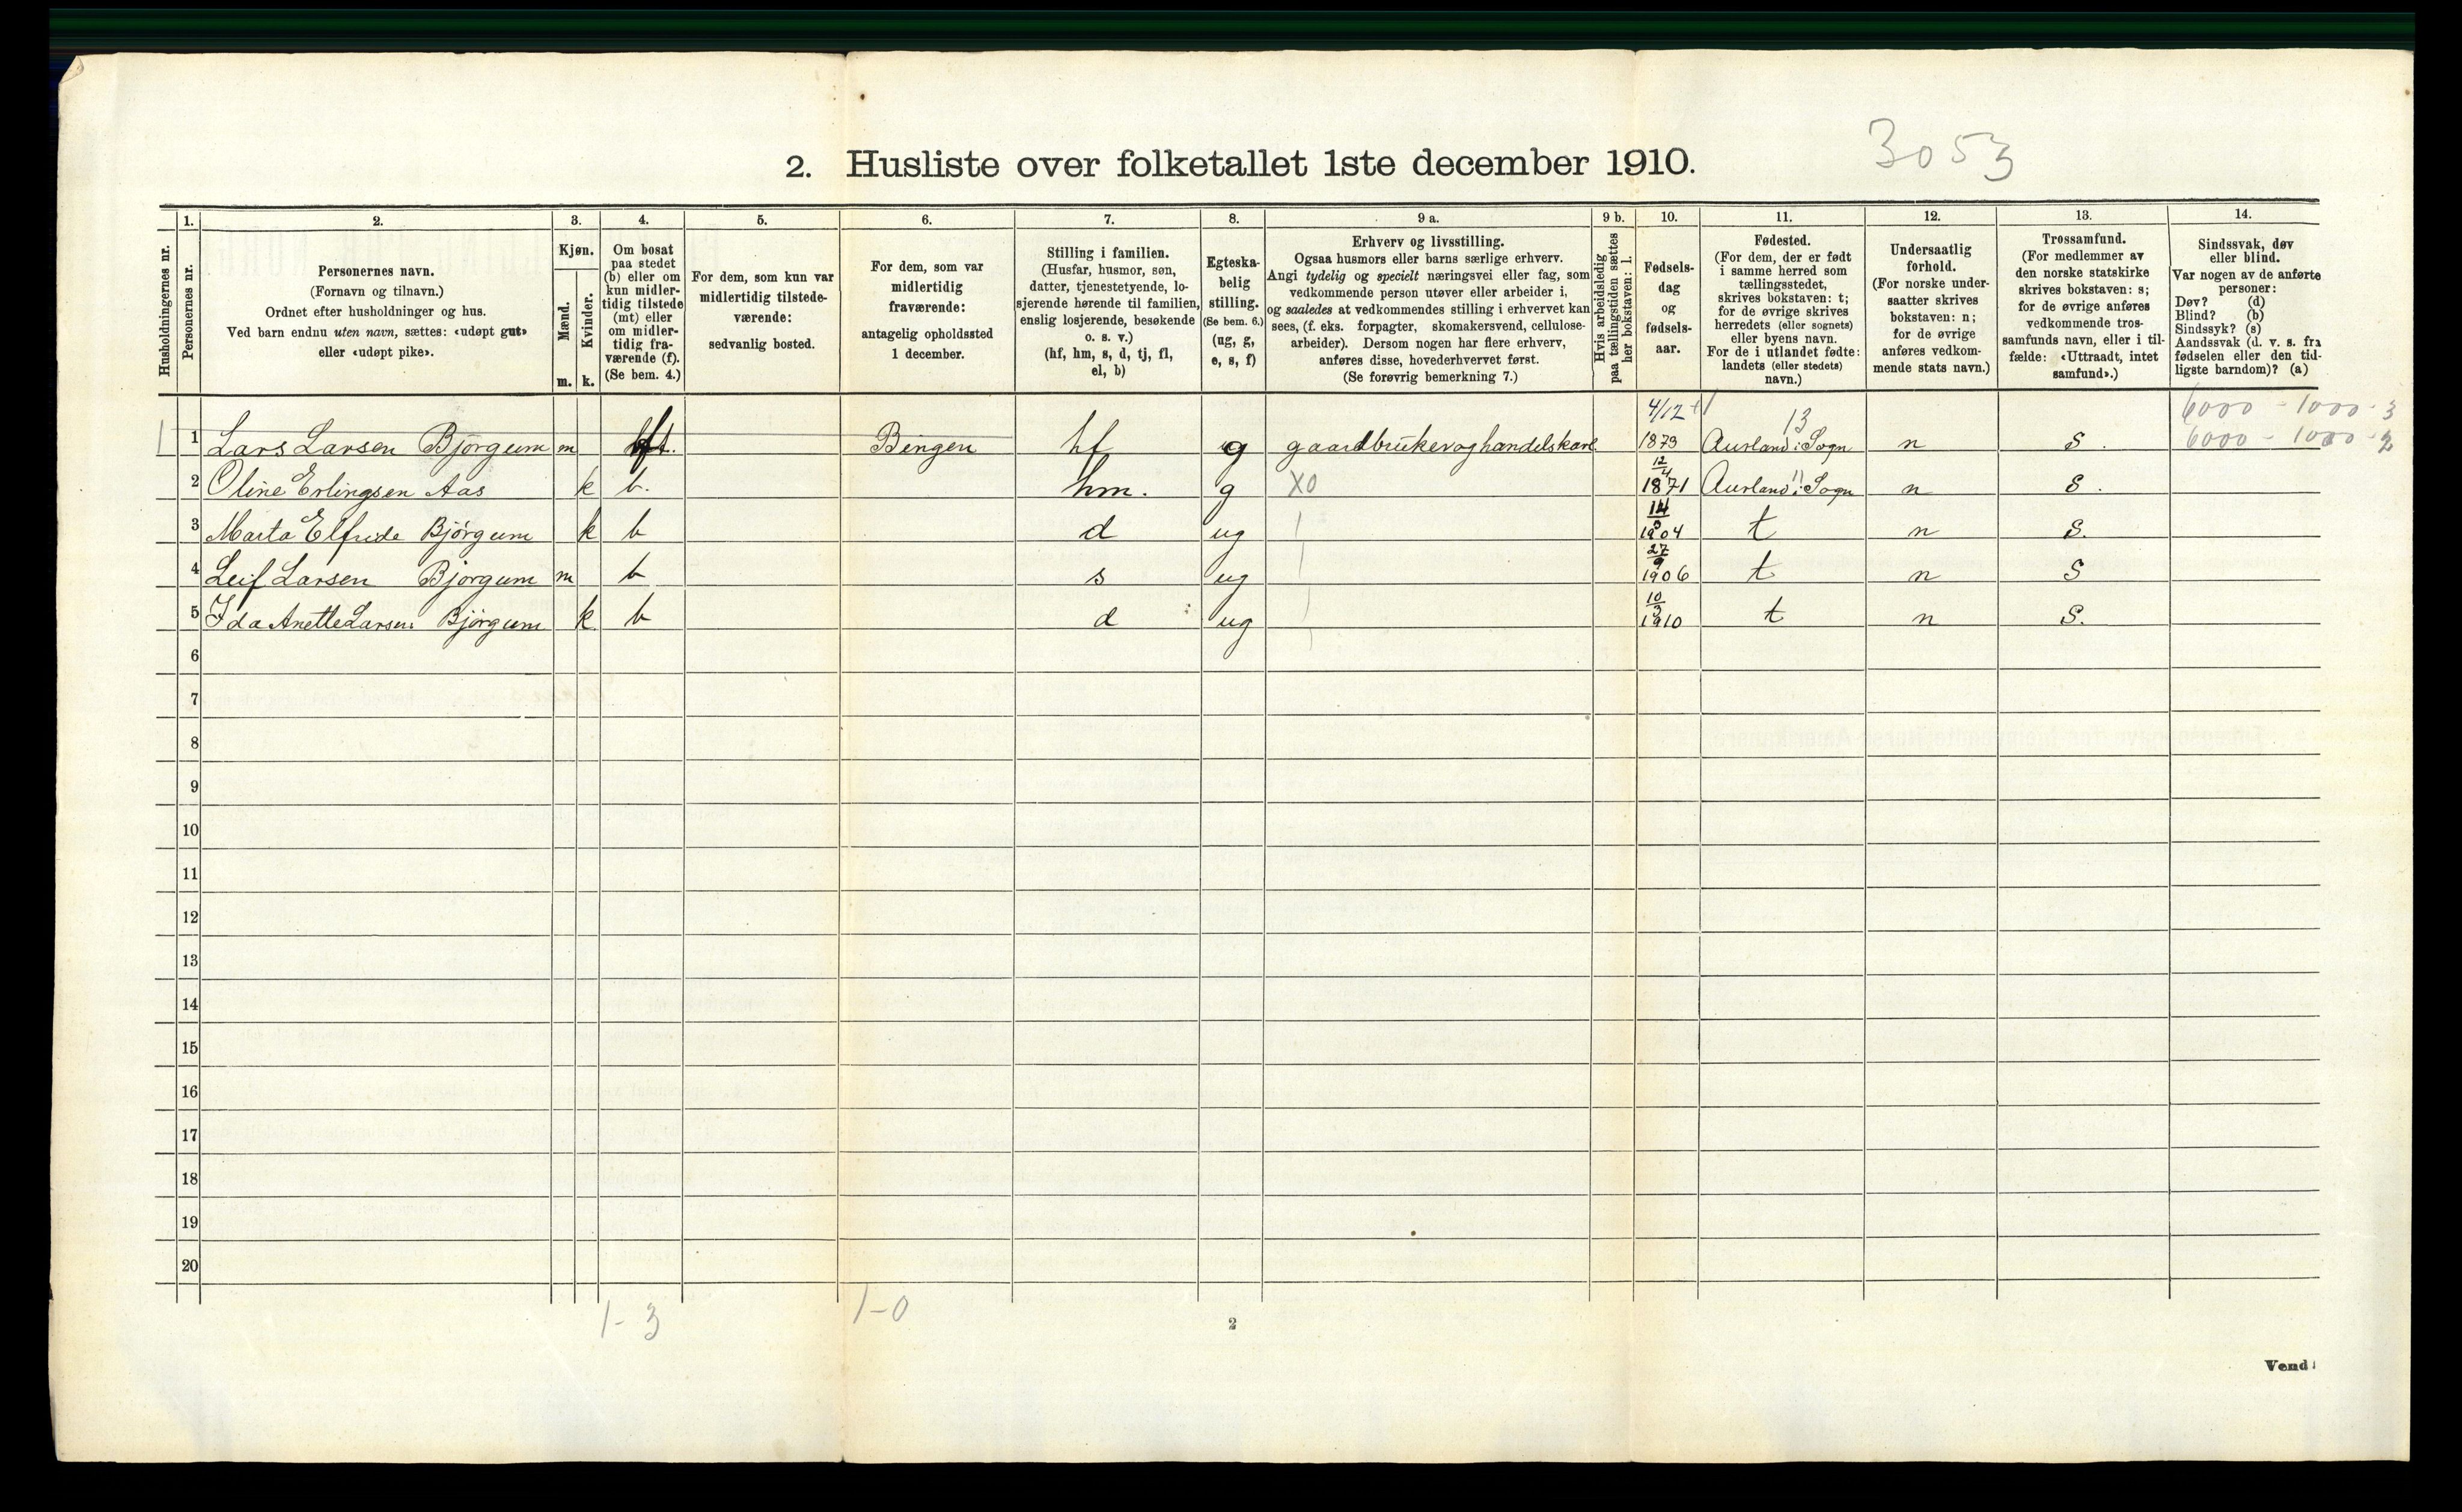 2. Husliste over folketallet 1ste december 1910.
3053
Husholdningernes nr.
1. Personernes nr.
2. Personernes navn.
(Fornavn og tilnavn.)
Ordnet efter husholdninger og hus.
Ved barn endnu uten navn, sættes: «udøpt gut»
eller «udøpt pike».
3. Kjøn.
Mænd. m.
Kvinder. k.
4. Om bosat
paa stedet
(b) eller om
kun midler-
tidig tilstede
(mt) eller
om midler-
tidig fra-
værende (f).
(Se bem. 4.)
5. For dem, som kun var
midlertidig tilstede-
værende:
sedvanlig bosted.
6. For dem, som var
midlertidig
fraværende:
antagelig opholdssted
1 december.
7. Stilling i familien.
(Husfar, husmor, søn,
datter, tjenestetyende, lo-
sjerende hørende til familien,
enslig losjerende, besøkende
o. s. v.)
(hf, hm, s, d, tj, fl,
el, b)
8. Egteska-
belig
stilling.
(Se bem. 6.)
(ug, g,
e, s, f)
9 a. Erhverv og livsstilling.
Ogsaa husmors eller barns særlige erhverv.
Angi tydelig og specielt næringsvei eller fag, som
vedkommende person utøver eller arbeider i,
og saaledes at vedkommendes stilling i erhvervet kan
sees, (f. eks. forpagter, skomakersvend, cellulose-
arbeider). Dersom nogen har flere erhverv,
anføres disse, hovederhvervet først.
(Se forøvrig bemerkning 7.)
9 b. Hvis arbeidsledig
paa tællingstiden sættes
her bokstaven: l.
10. Fødsels-
dag
og
fødsels-
aar.
11. Fødested.
(For dem, der er født
i samme herred som
tællingsstedet,
skrives bokstaven: t;
for de øvrige skrives
herredets (eller sognets)
eller byens navn.
For de i utlandet fødte:
landets (eller stedets)
navn.)
12. Undersaatlig
forhold.
(For norske under-
saatter skrives
bokstaven: n;
for de øvrige
anføres vedkom-
mende stats navn.)
13. Trossamfund.
(For medlemmer av
den norske statskirke
skrives bokstaven: s;
for de øvrige anføres
vedkommende tros-
samfunds navn, eller i til-
fælde: «Uttraadt, intet
samfund».)
14. Sindssvak, døv
eller blind.
Var nogen av de anførte
personer:
Døv? (d)
Blind? (b)
Sindssyk? (s)
Aandssvak (d. v. s. fra
fødselen eller den tid-
ligste barndom)? (a)
4/12 13 6000 - 1000 - 3
1 1 Lars Larsen Bjørgum m Bergen hf g gaardbruker og handelskarl 1879 Aurland i Sogn n S. 6000 - 1000 - 2
2 Oline Erlingsen Aas k b. hm. g X0 12/4 1871 Aurland i Sogn n S.
3 Marta Elfride Bjørgum k b d ug 1904 t n S.
4 Leif Larsen Bjørgum m b s ug 27/9 1906 t n S
5 Ida Anette Larsen Bjørgum k b d ug 10/3 1910 t n S.
6
7
8
9
10
11
12
13
14
15
16
17
18
19
20
1-3 1-0
2
Vend!